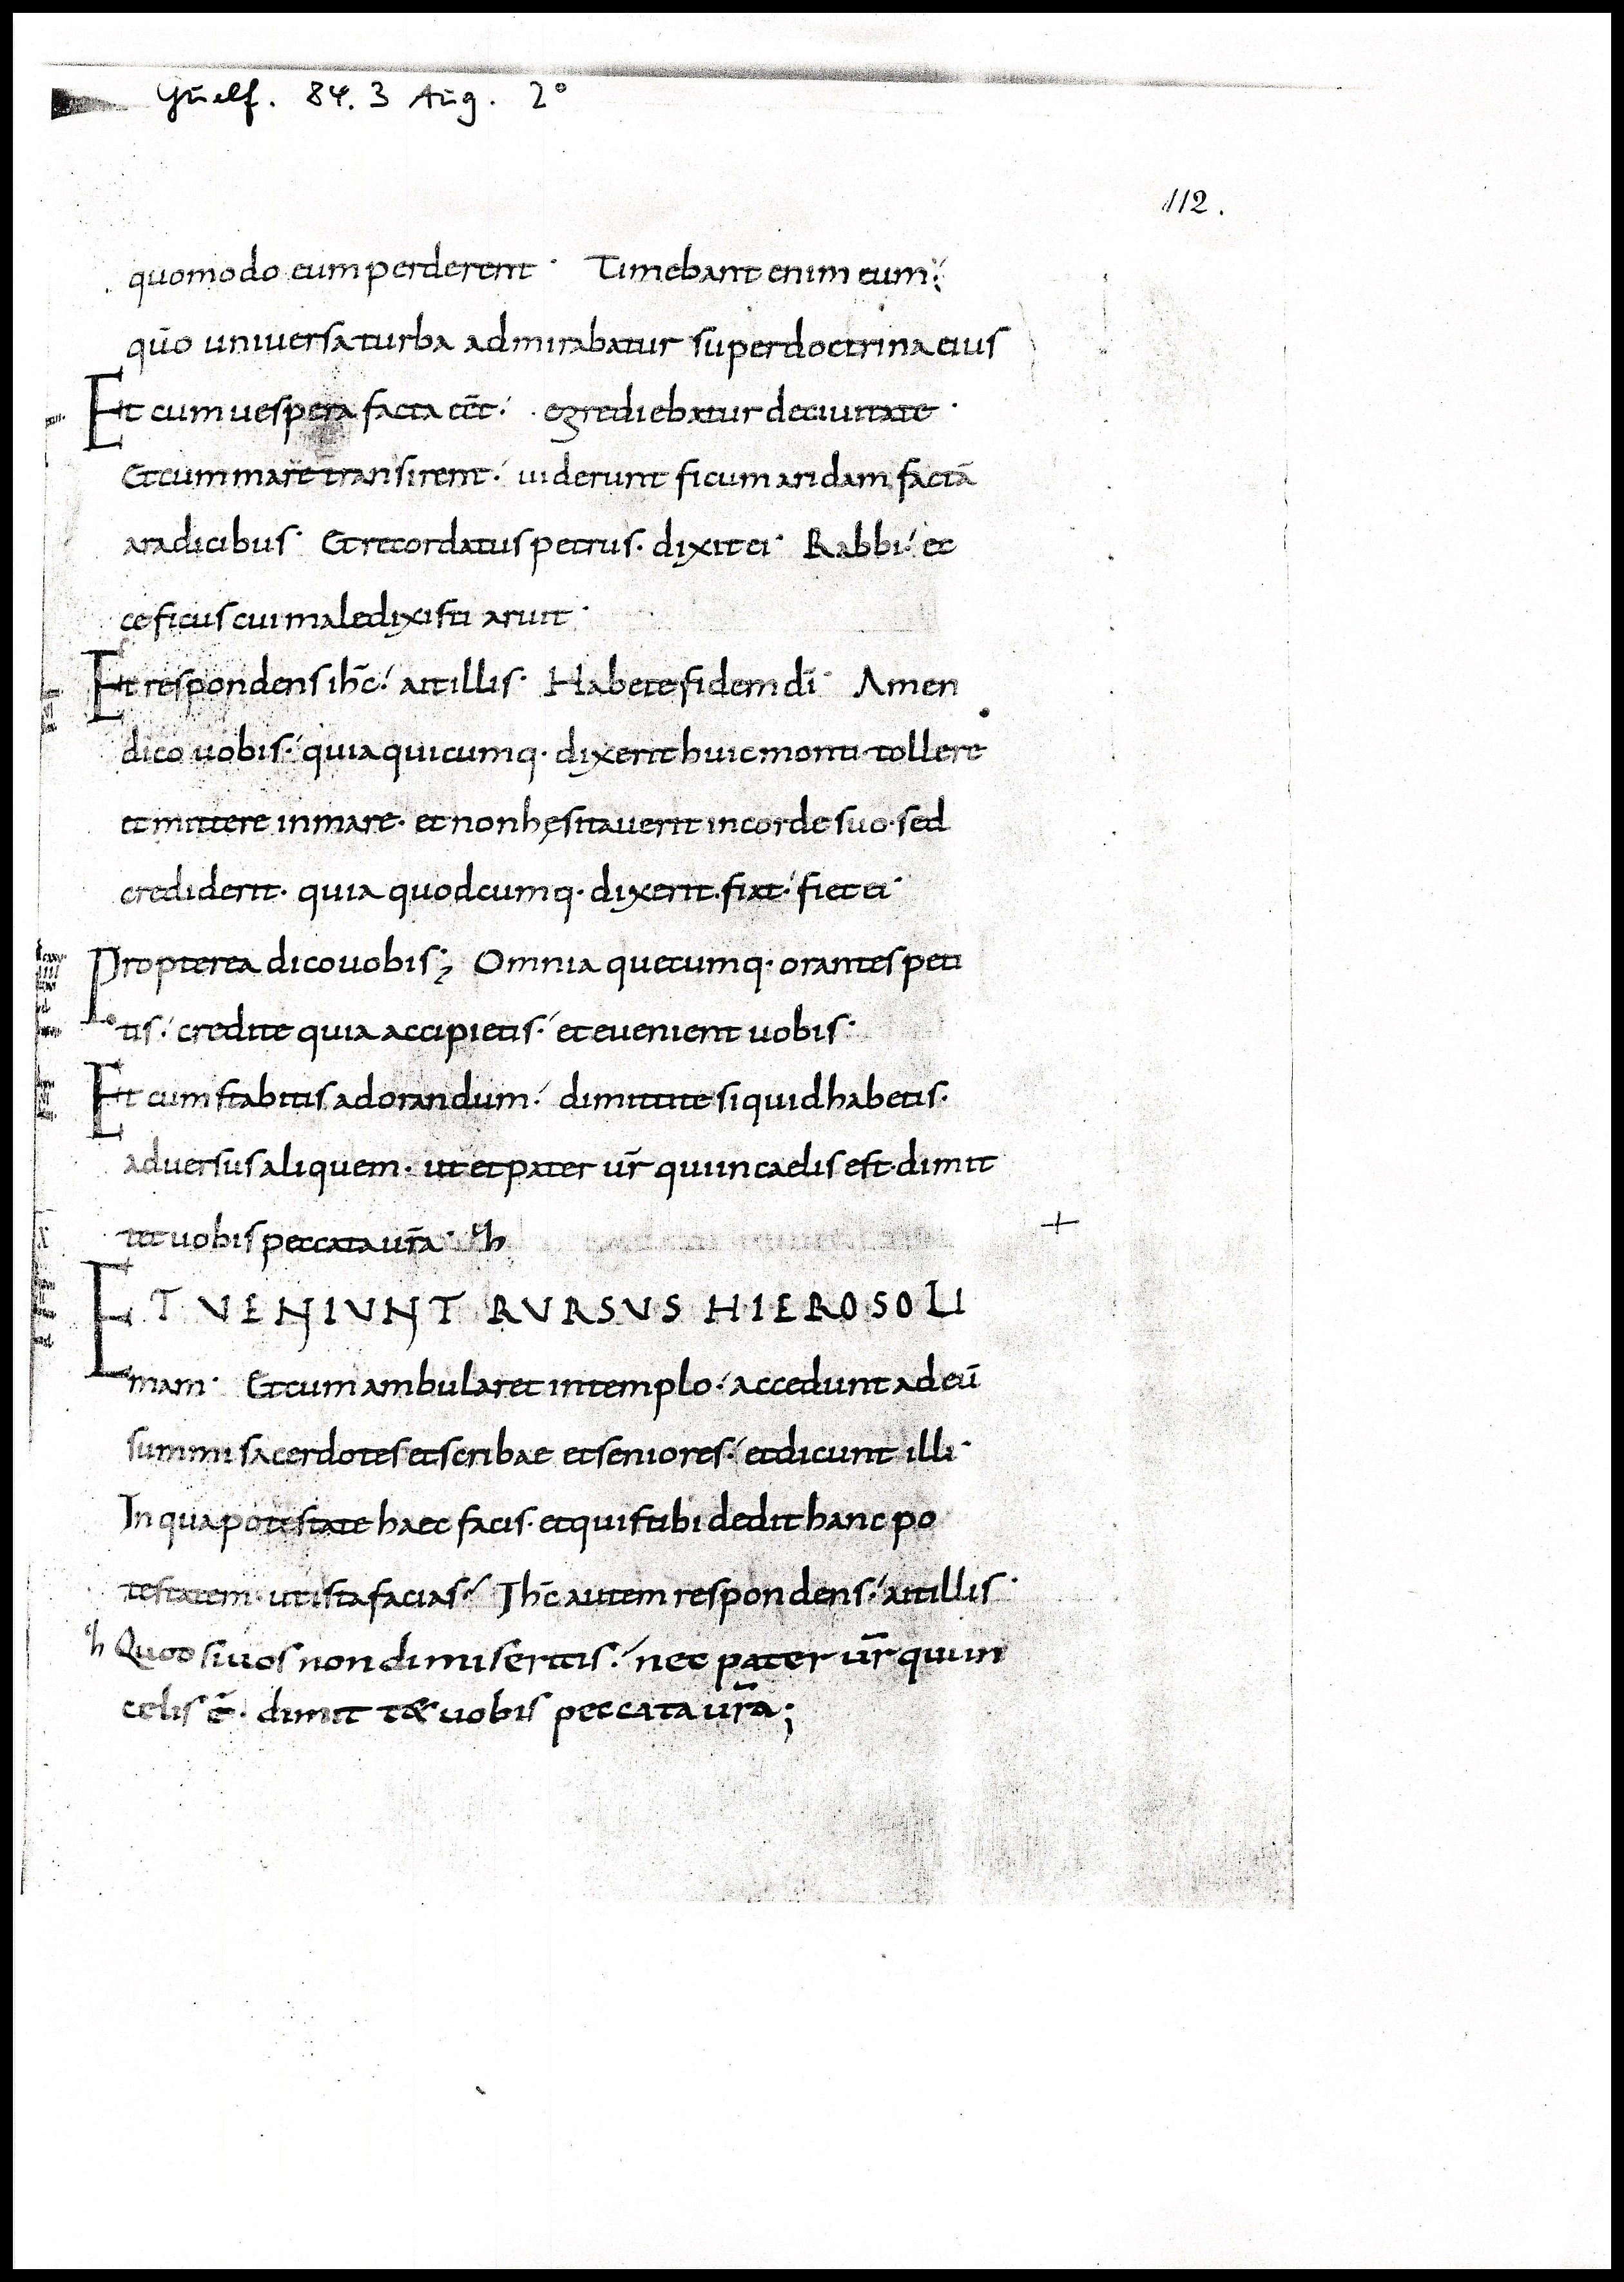 Guelf. 84. 3 Aug. 2°
112.
quomodo eum perderent · Timebant enim eum;
qūo uniuersa turba admirabatur super doctrina eius
Et cum uespera facta eēt· egrediebatur de ciuitate ·
Et cum mare transirent· uiderunt ficum aridam factā
a radicibus· Et recordatus petrus· dixit ei· Rabbi· ec
ce ficus cui maledixisti aruit·
Et respondens ih̄c· ait illis· Habete fidem dī· Amen
dico uobis· quia quicumq· dixerit huic monti tollere
et mittere in mare· et non hęsitauerit in corde suo· sed
crediderit· quia quodcumq· dixerit fiat· fiet ei·
Propterea dico uobis; Omnia quecumq· orantes peti
tis· credite quia accipietis· et euenient uobis·
Et cum stabitis ad orandum· dimittite si quid habetis·
aduersus aliquem· ut et pater ur̄ qui in caelis est· dimit
tet uobis peccata ur̄a· h
ET VENIVNT RVRSVS HIEROSOLI
mam· Et cum ambularet in templo· accedunt ad eū
summi sacerdotes et scribae et seniores· et dicunt illi·
In qua potestate haec facis· et quis tibi dedit hanc po
testatem· ut ista facias· Ih̄c autem respondens· ait illis·
h Quod si uos non dimiseritis· nec pater ur̄ qui in
celis ē· dimit t& uobis peccata ur̄a;